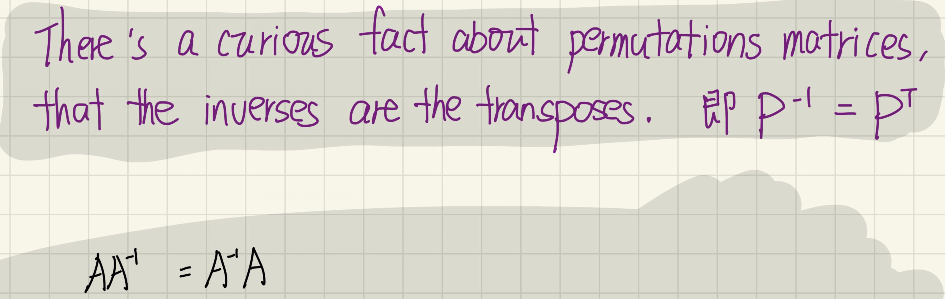 There's a curious fact about permutations matrices,
that the inverses are the transposes. 即 P⁻¹ = Pᵀ
AA⁻¹ = A⁻¹A